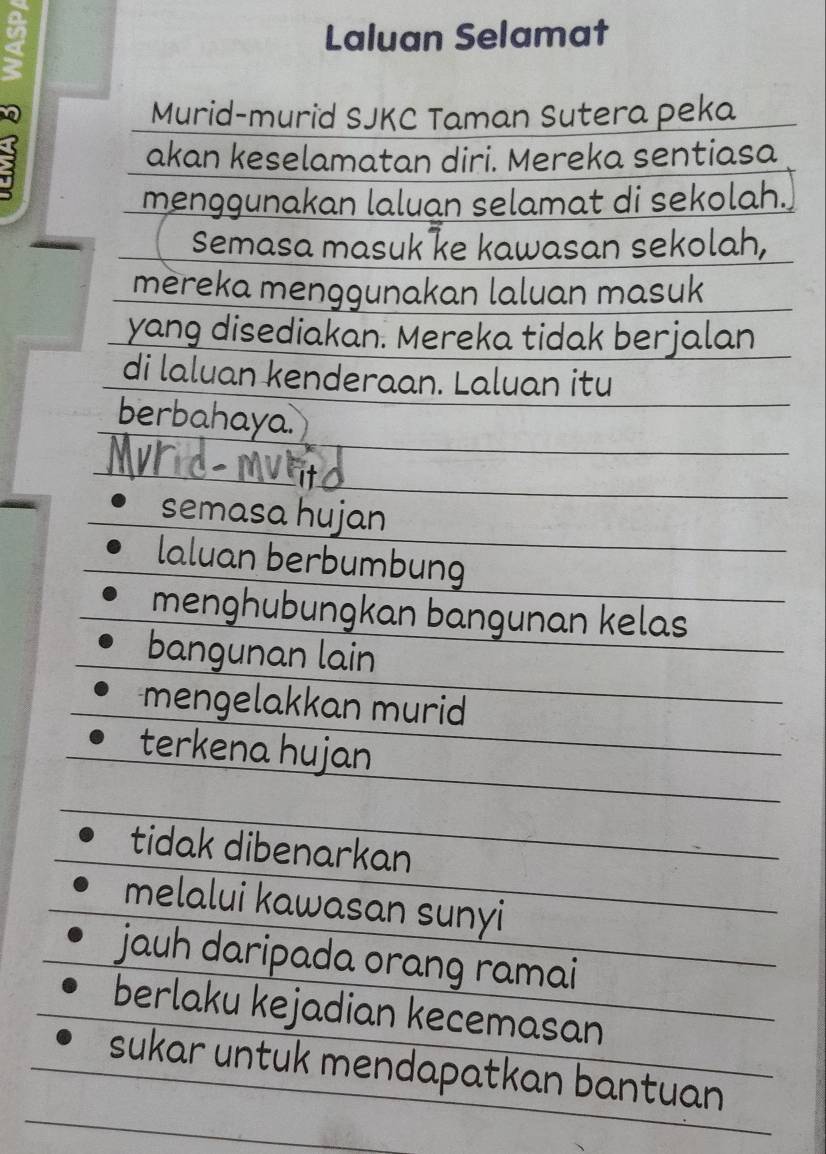 TEMA 3 WASPA
Laluan Selamat
Murid-murid SJKC Taman Sutera peka
akan keselamatan diri. Mereka sentiasa
menggunakan laluan selamat di sekolah.
Semasa masuk ke kawasan sekolah,
mereka menggunakan laluan masuk
yang disediakan. Mereka tidak berjalan
di laluan kenderaan. Laluan itu
berbahaya.
Murid-murid
• semasa hujan
• laluan berbumbung
• menghubungkan bangunan kelas
• bangunan lain
• mengelakkan murid
• terkena hujan
• tidak dibenarkan
• melalui kawasan sunyi
• jauh daripada orang ramai
• berlaku kejadian kecemasan
• sukar untuk mendapatkan bantuan